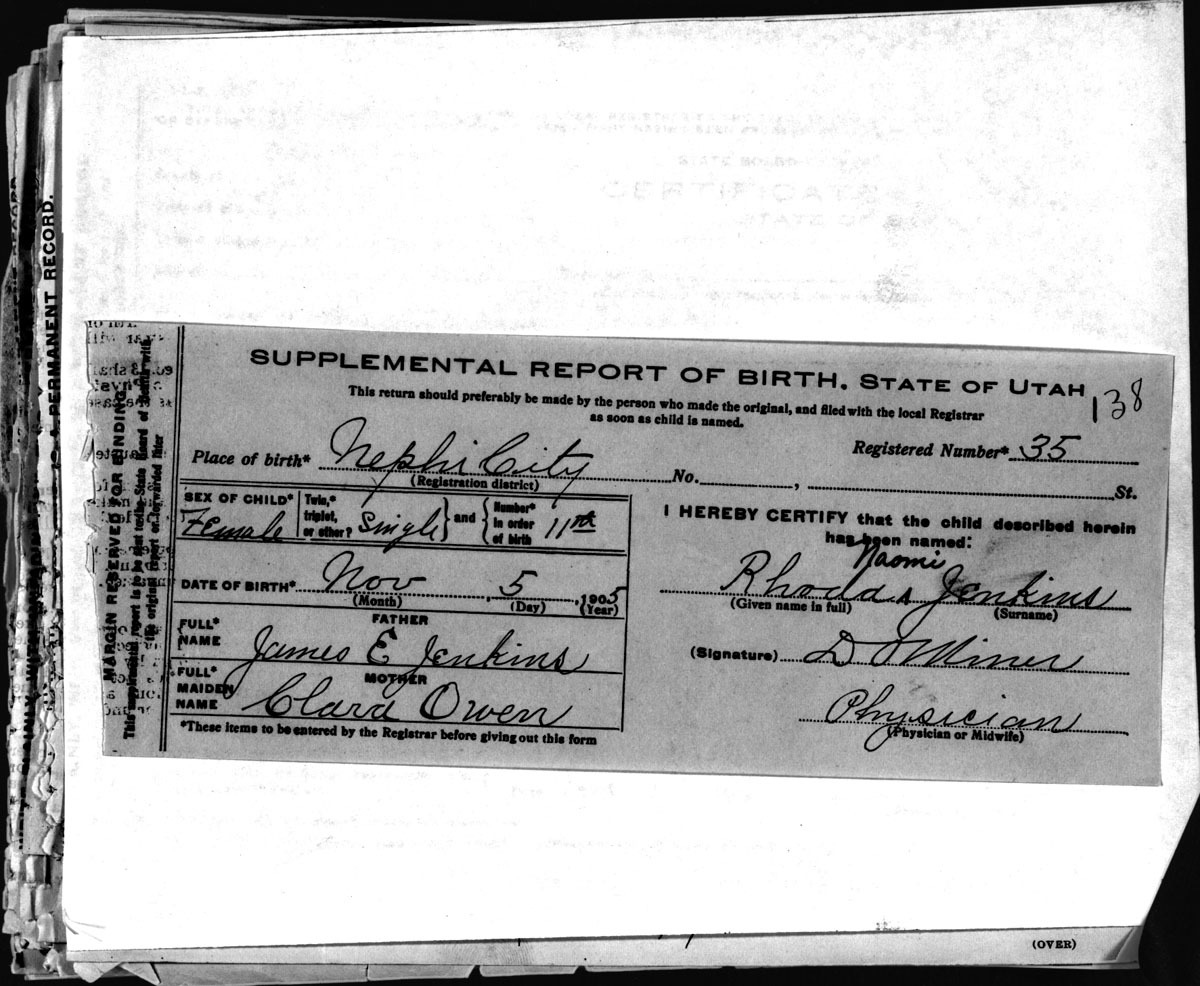 SUPPLEMENTAL REPORT OF BIRTH. STATE OF UTAH
138
This return should preferably be made by the person who made the original, and filed with the local Registrar
as soon as child is named.
Registered Number* 35
Place of birth* Nephi City No. , St.
(Registration district)
SEX OF CHILD* Female
Twin,* triplet, or other? Single } and { Number* in order of birth 11th
DATE OF BIRTH* Nov 5 , 1905
(Month) (Day) (Year)
FATHER
FULL* NAME James E Jenkins
MOTHER
FULL* MAIDEN NAME Clara Owen
*These items to be entered by the Registrar before giving out this form
I HEREBY CERTIFY that the child described herein
has been named:
Naomi
Rhoda ^ Jenkins
(Given name in full) (Surname)
(Signature) D Miner
Physician
(Physician or Midwife)
MARGIN RESERVED FOR BINDING
This supplemental report is to be sent to the State Board of Health with
the original report or forwarded later
A PERMANENT RECORD.
(OVER)